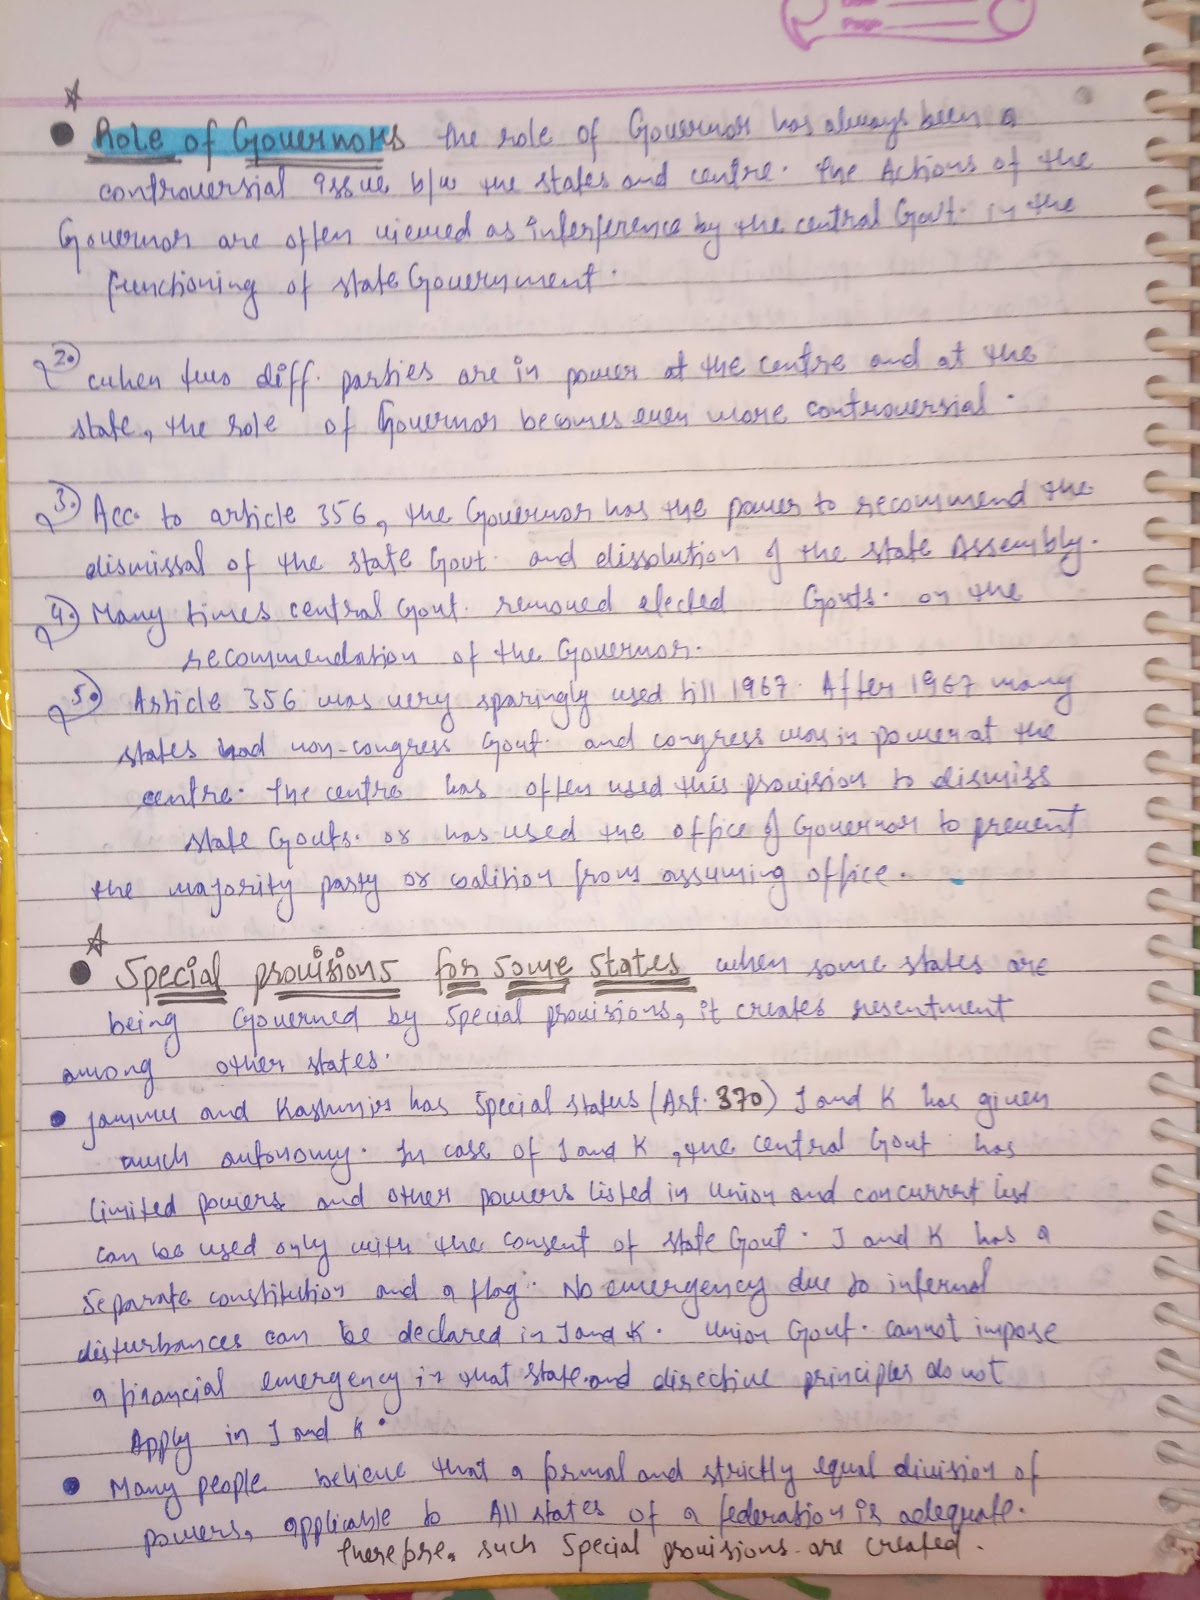 Page
Role of Governors the role of Governor has always been a
controversial issue b/w the states and centre. the Actions of the
Governor are often viewed as inference by the central Govt. in the
functioning of state Government.
2. when two diff. parties are in power at the centre and at the
state, the role of Governor becomes even more controversial.
3. Acc. to article 356, the Governor has the power to recommend the
dismissal of the state Govt. and dissolution of the state Assembly.
4. Many times central Govt. removed elected Govts. on the
recommendation of the Governor.
5. Article 356 was very sparingly used till 1967. After 1967 many
states had non-congress Govt. and congress was in power at the
centre. the centre has often used this provision to dismiss
state Govts. or has used the office of Governor to prevent
the majority party or coalition from assuming office.
Special provisions for Some States when some states are
being Governed by Special provisions, it creates resentment
among other states.
Jammu and Kashmir has Special status (Art. 370) J and K has given
much autonomy. In case of J and K, the central Govt has
limited powers and other powers listed in Union and concurrent list
can be used only with the consent of state Govt. J and K has a
Separate constitution and a flag. No emergency due to internal
disturbances can be declared in J and K. Union Govt. cannot impose
a financial emergency in that state and directive principles do not
Apply in J and K.
Many people believe that a formal and strictly equal division of
powers, applicable to All states of a federation is adequate.
therefore, such Special provisions are created.